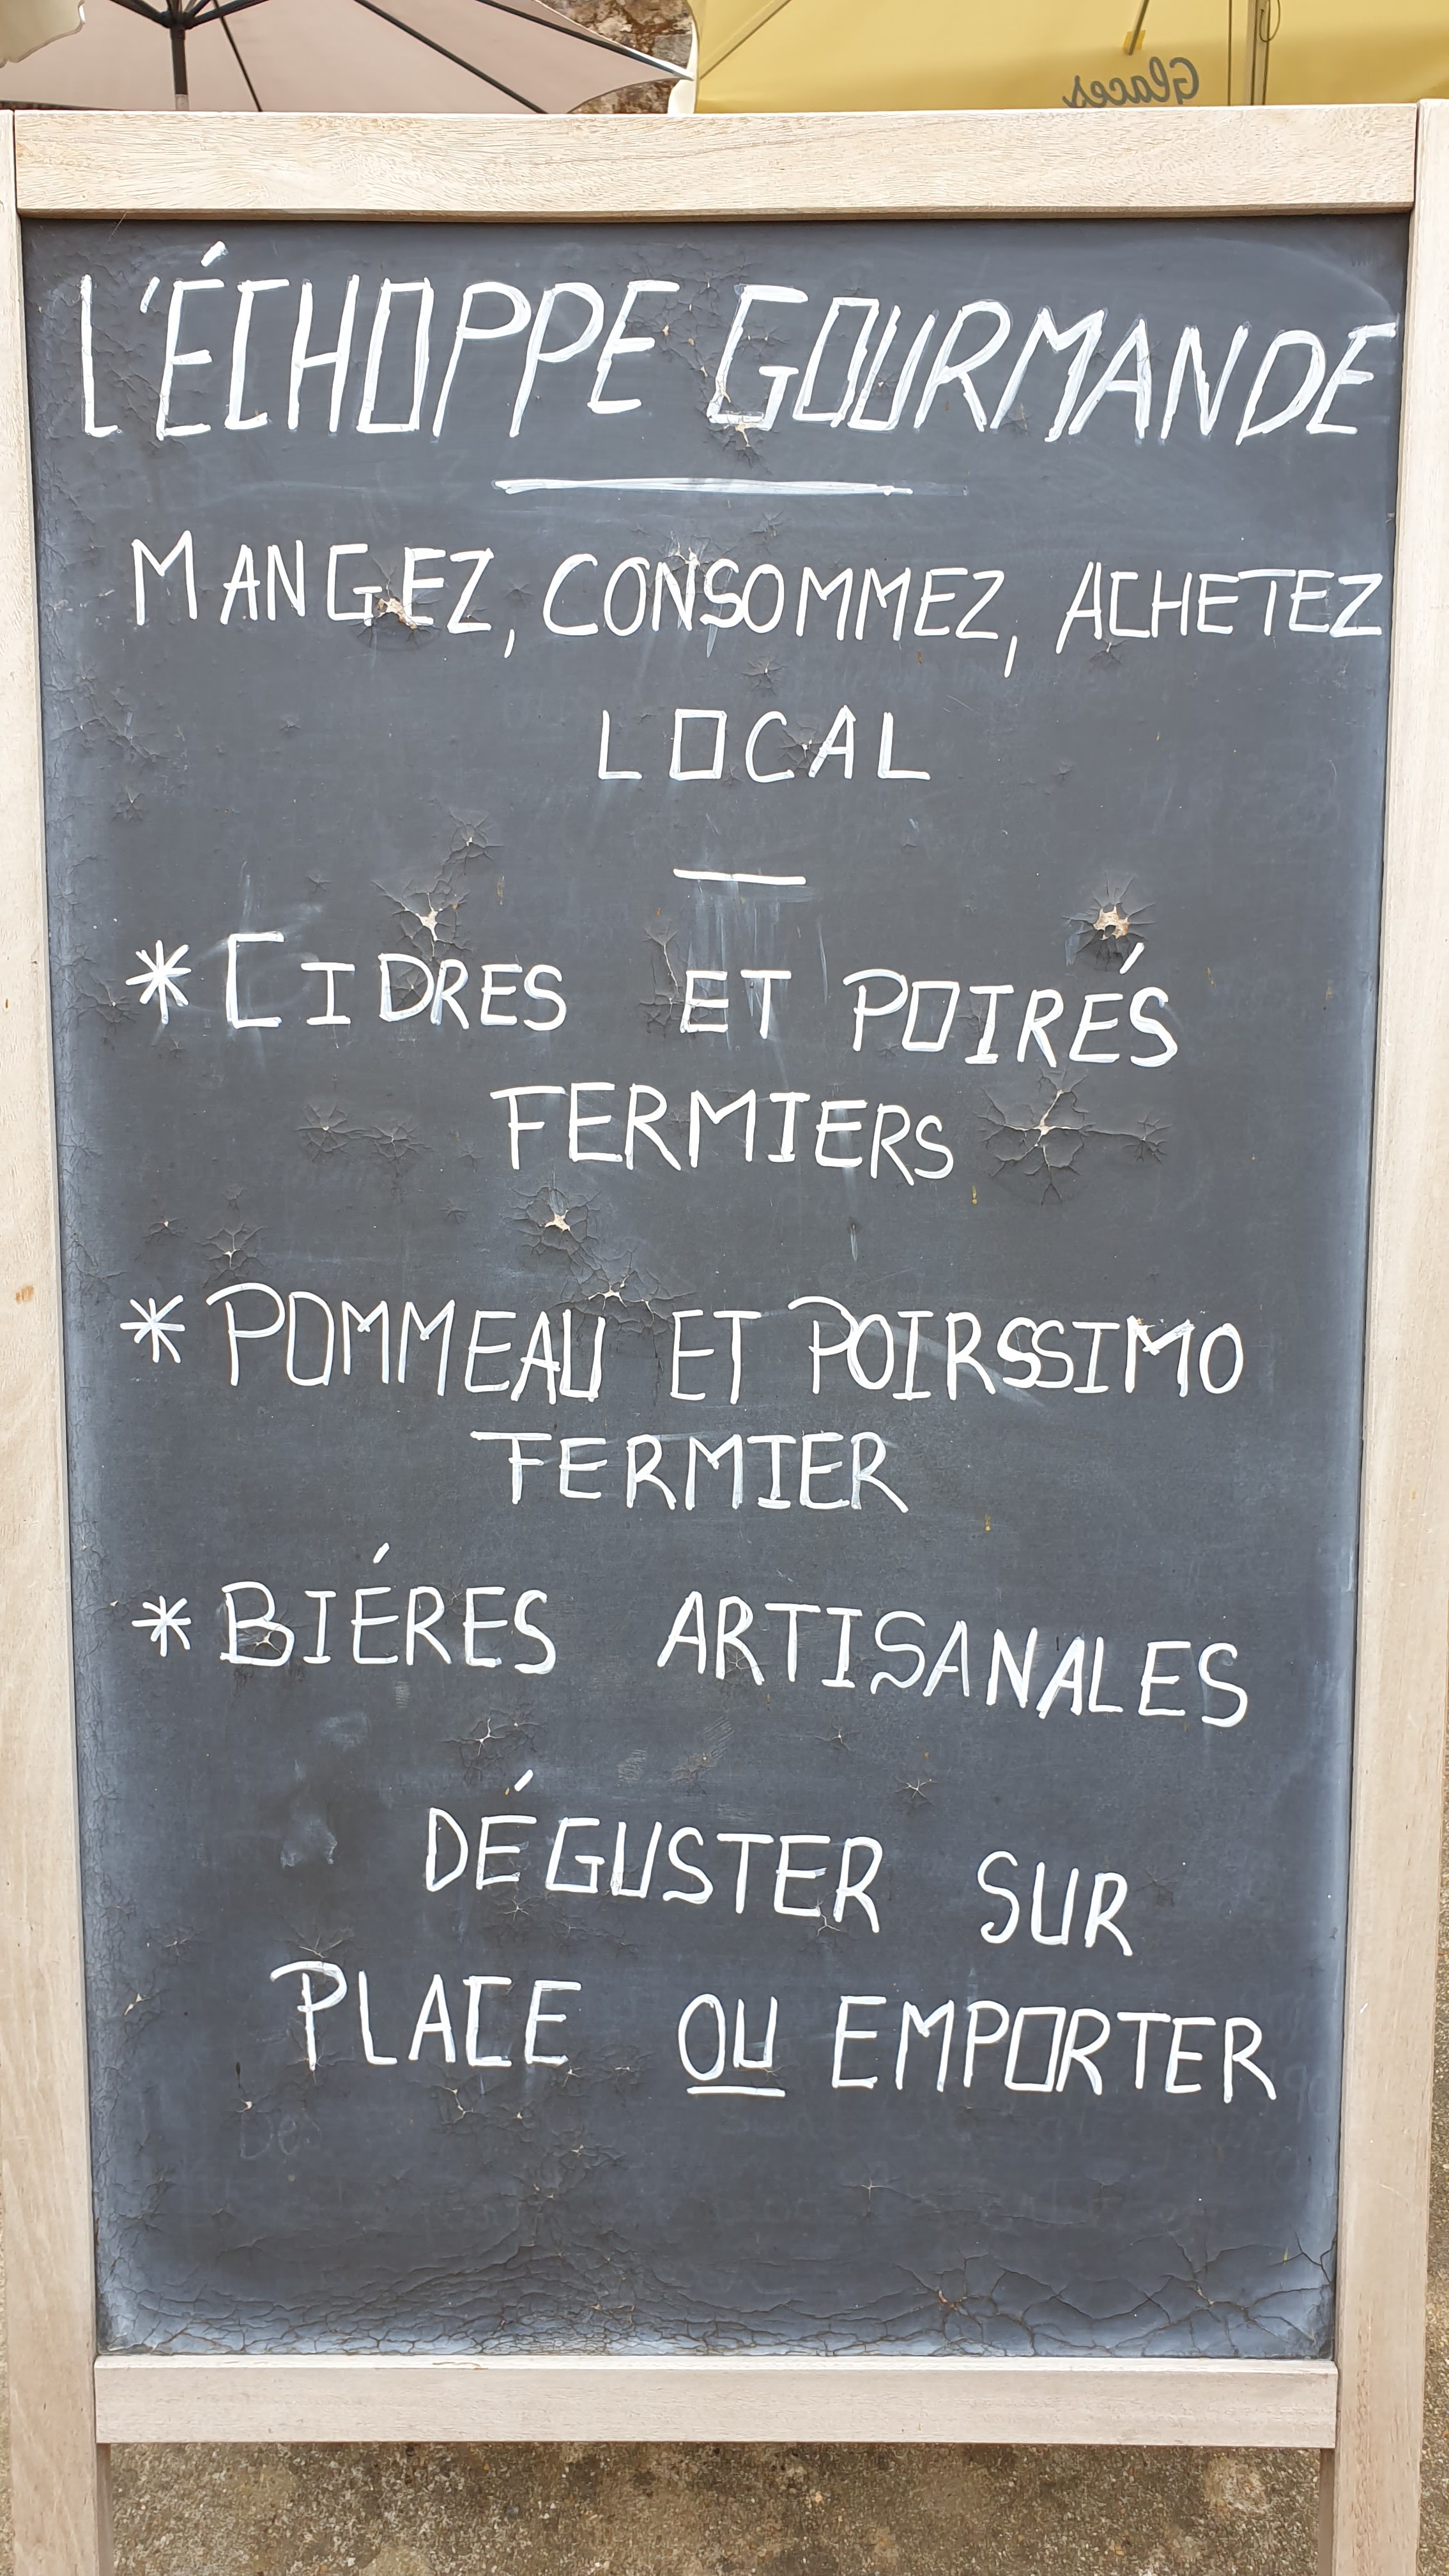 Glaces
L'ÉCHOPPE GOURMANDE
MANGEZ, CONSOMMEZ, ACHETEZ
LOCAL
* CIDRES ET POIRÉS
FERMIERS
* POMMEAU ET POIRSSIMO
FERMIER
* BIÉRES ARTISANALES
DÉGUSTER SUR
PLACE OU EMPORTER